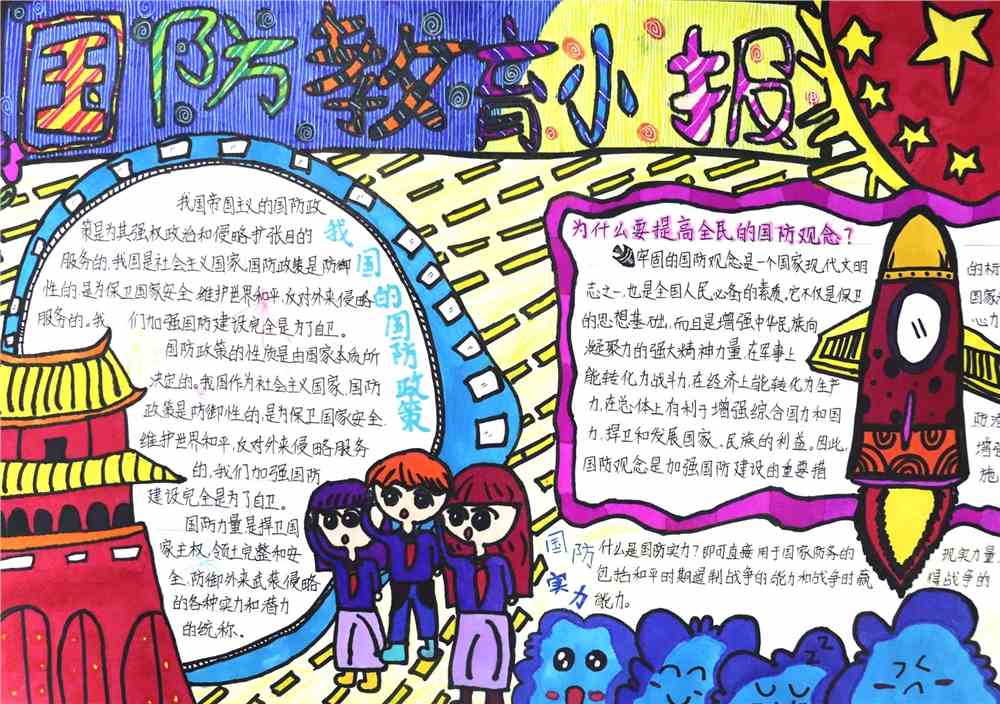 国防教育小报
我国的国防政策
我国帝国主义的国防政
策是为其强权政治和侵略扩张目的
服务的.我国是社会主义国家.国防政策是防御
性的.是为保卫国家安全.维护世界和平,反对外来侵略
服务的.我们加强国防建设完全是为了自卫。
国防政策的性质是由国家本质所
决定的。我国作为社会主义国家,国防
政策是防御性的,是为保卫国家安全.
维护世界和平,反对外来侵略服务
的.我们加强国防
建设完全是为了自卫。
国防力量是捍卫国
家主权.领土完整和安
全.防御外来武装侵略
的各种实力和潜力
的统称.
为什么要提高全民的国防观念?
牢固的国防观念是一个国家现代文明
志之一,也是全国人民必备的素质。它不仅是保卫
的思想基础,而且是增强中华民族向
凝聚力的强大精神力量.在军事上
能转化为战斗力.在经济上能转化为生产
力.在总体上有利于增强综合国力和国
力.捍卫和发展国家、民族的利益。因此,
国防观念是加强国防建设的重要措
的标
国家
心力
防治
增强
施
国防实力
什么是国防实力?即可直接用于国家防务的现实力量
包括和平时期遏制战争的能力和战争时赢得战争的
能力。